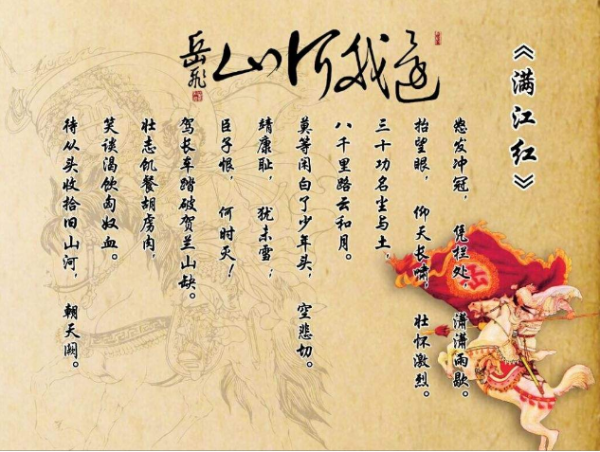 還我河山
岳飛
《满江红》
怒发冲冠， 凭栏处， 潇潇雨歇。
抬望眼， 仰天长啸， 壮怀激烈。
三十功名尘与土，
八千里路云和月。
莫等闲白了少年头、 空悲切。
靖康耻， 犹未雪；
臣子恨， 何时灭！
驾长车踏破贺兰山缺。
壮志饥餐胡虏肉，
笑谈渴饮匈奴血。
待从头收拾旧山河， 朝天阙。